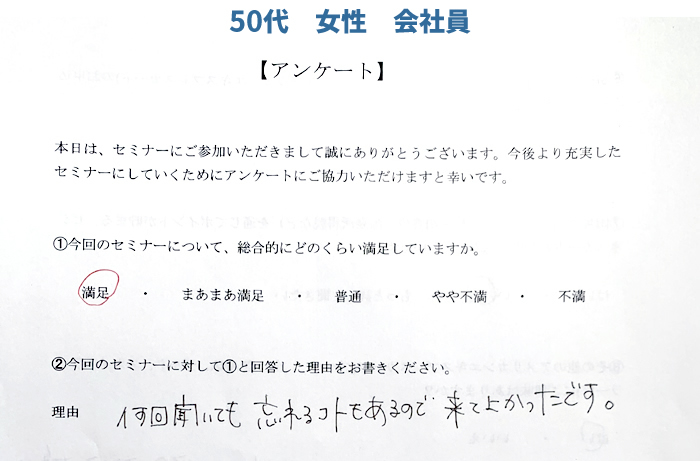 50代 女性 会社員
【アンケート】
本日は、セミナーにご参加いただきまして誠にありがとうございます。今後より充実した
セミナーにしていくためにアンケートにご協力いただけますと幸いです。
①今回のセミナーについて、総合的にどのくらい満足していますか。
満足 ・ まあまあ満足 ・ 普通 ・ やや不満 ・ 不満
②今回のセミナーに対して①と回答した理由をお書きください。
理由 何回聞いても 忘れるコトもあるので 来てよかったです。